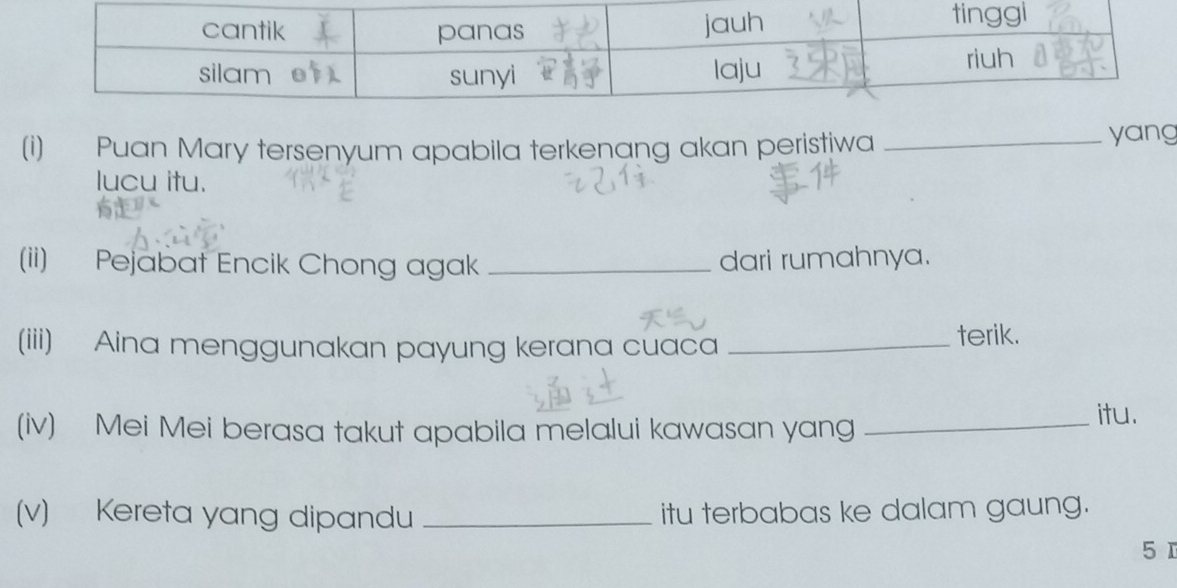 cantik 美 panas jauh tinggi 高
silam sunyi 寂静 laju 速度 riuh 嘈杂
(i) Puan Mary tersenyum apabila terkenang akan peristiwa yang
微笑 记住 事件
lucu itu.
有趣
办公室
(ii) Pejabat Encik Chong agak dari rumahnya.
天气
(iii) Aina menggunakan payung kerana cuaca terik.
通过
(iv) Mei Mei berasa takut apabila melalui kawasan yang itu.
(v) Kereta yang dipandu itu terbabas ke dalam gaung.
5